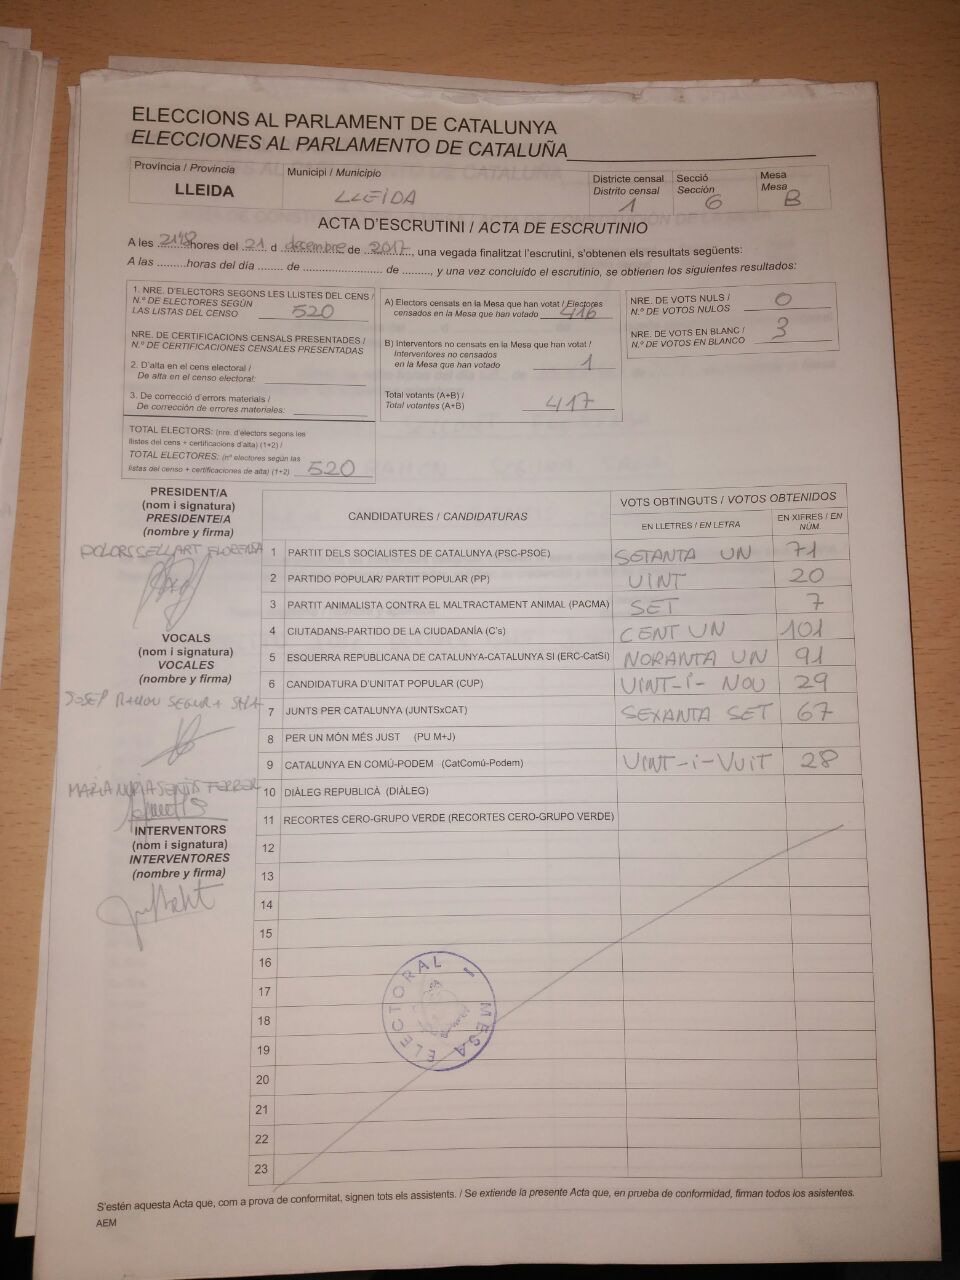 ELECCIONS AL PARLAMENT DE CATALUNYA
ELECCIONES AL PARLAMENTO DE CATALUÑA
Província / Provincia
LLEIDA
Municipi / Municipio
LLEIDA
Districte censal
Distrito censal
1
Secció
Sección
6
Mesa
Mesa
B
ACTA D'ESCRUTINI / ACTA DE ESCRUTINIO
A les hores del 21 d desembre de 2017, una vegada finalitzat l'escrutini, s'obtenen els resultats següents:
A las .........horas del día ....... de ....................... de ........, y una vez concluido el escrutinio, se obtienen los siguientes resultados:
1. NRE. D'ELECTORS SEGONS LES LLISTES DEL CENS /
N.º DE ELECTORES SEGÚN
LAS LISTAS DEL CENSO 520
NRE. DE CERTIFICACIONS CENSALS PRESENTADES /
N.º DE CERTIFICACIONES CENSALES PRESENTADAS
2. D'alta en el cens electoral /
De alta en el censo electoral:
3. De correcció d'errors materials /
De corrección de errores materiales:
TOTAL ELECTORS: (nre. d'electors segons les
llistes del cens + certificacions d'alta) (1+2) /
TOTAL ELECTORES: (nº electores según las
listas del censo + certificaciones de alta) (1+2) 520
A) Electors censats en la Mesa que han votat / Electores
censados en la Mesa que han votado 416
B) Interventors no censats en la Mesa que han votat /
Interventores no censados
en la Mesa que han votado 1
Total votants (A+B) /
Total votantes (A+B) 417
NRE. DE VOTS NULS /
N.º DE VOTOS NULOS 0
NRE. DE VOTS EN BLANC /
N.º DE VOTOS EN BLANCO 3
PRESIDENT/A
(nom i signatura)
PRESIDENTE/A
(nombre y firma)
DOLORS SELLART FLORENSA
VOCALS
(nom i signatura)
VOCALES
(nombre y firma)
JOSEP RAMON SEGURA
MARIA NURIA SENTIS FERRER
INTERVENTORS
(nom i signatura)
INTERVENTORES
(nombre y firma)
CANDIDATURES / CANDIDATURAS
VOTS OBTINGUTS / VOTOS OBTENIDOS
EN LLETRES / EN LETRA
EN XIFRES / EN NÚM.
1 PARTIT DELS SOCIALISTES DE CATALUNYA (PSC-PSOE) SETANTA UN 71
2 PARTIDO POPULAR/ PARTIT POPULAR (PP) VINT 20
3 PARTIT ANIMALISTA CONTRA EL MALTRACTAMENT ANIMAL (PACMA) SET 7
4 CIUTADANS-PARTIDO DE LA CIUDADANÍA (C's) CENT UN 101
5 ESQUERRA REPUBLICANA DE CATALUNYA-CATALUNYA SÍ (ERC-CatSí) NORANTA UN 91
6 CANDIDATURA D'UNITAT POPULAR (CUP) VINT-I-NOU 29
7 JUNTS PER CATALUNYA (JUNTSxCAT) SEXANTA SET 67
8 PER UN MÓN MÉS JUST (PU M+J)
9 CATALUNYA EN COMÚ-PODEM (CatComú-Podem) VINT-I-VUIT 28
10 DIÀLEG REPUBLICÀ (DIÀLEG)
11 RECORTES CERO-GRUPO VERDE (RECORTES CERO-GRUPO VERDE)
12
13
14
15
16
17
18
19
20
21
22
23
MESA ELECTORAL
S'estén aquesta Acta que, com a prova de conformitat, signen tots els assistents. / Se extiende la presente Acta que, en prueba de conformidad, firman todos los asistentes.
AEM